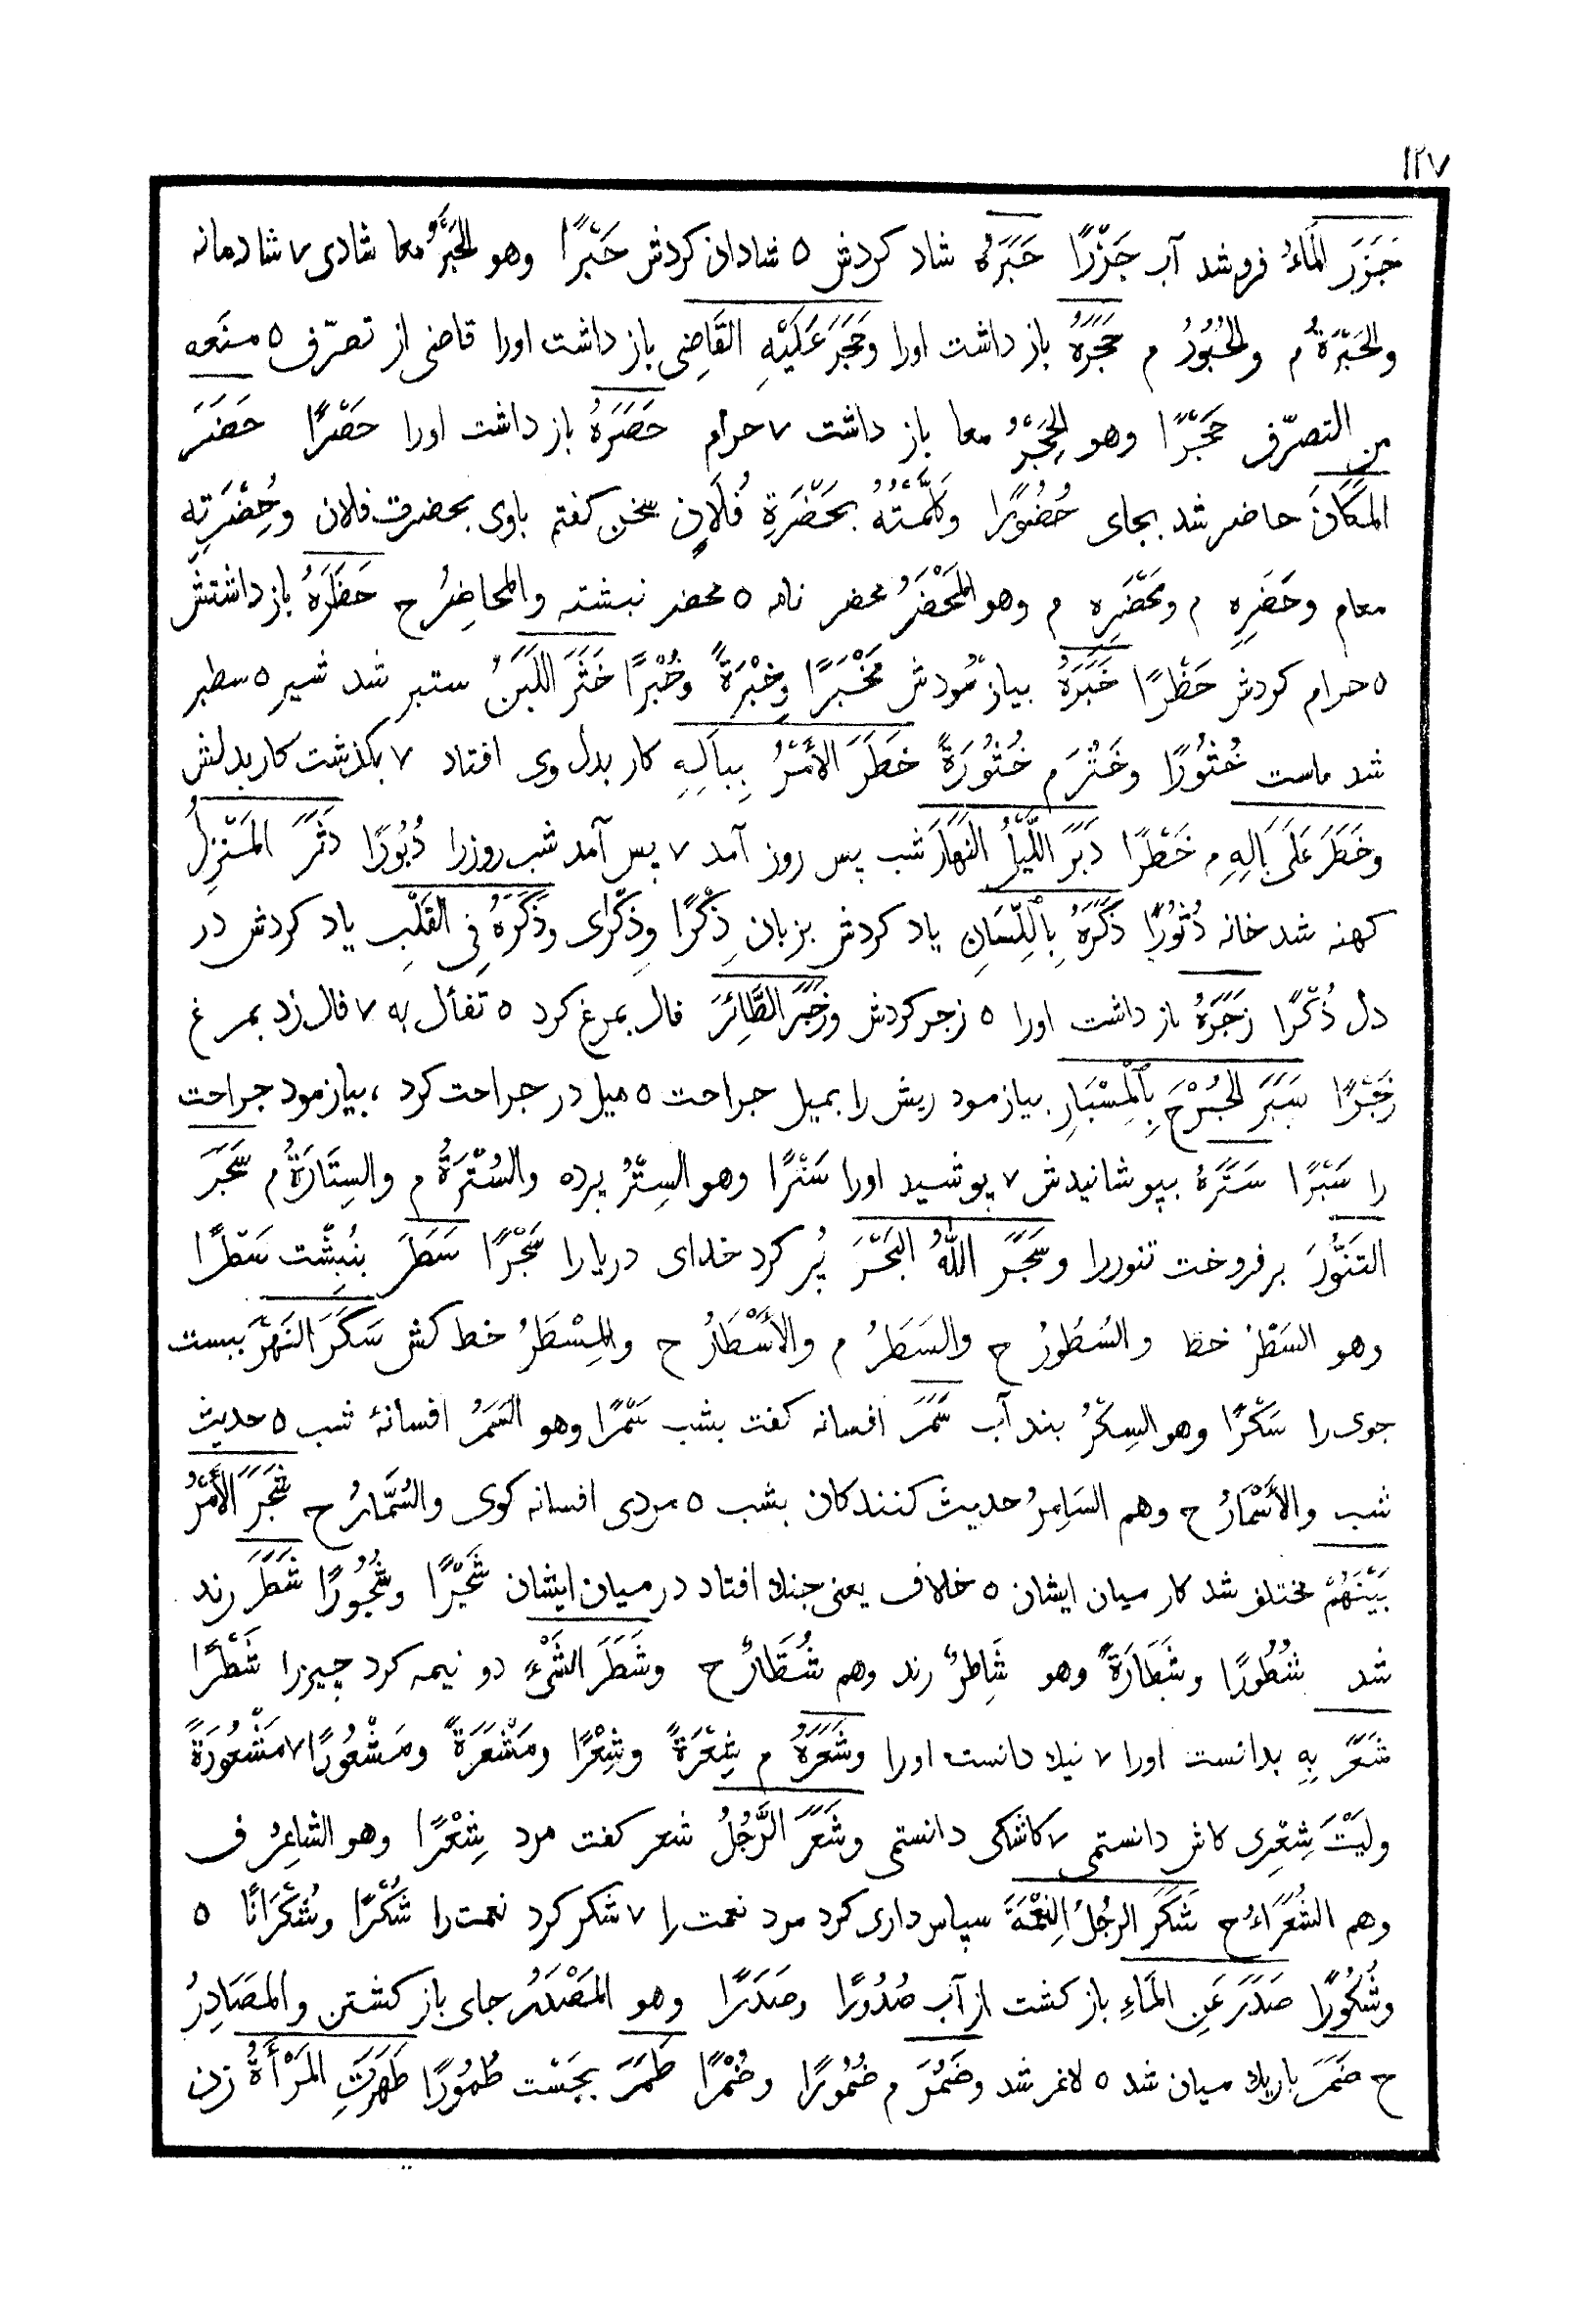 ١٢٧
جَزَرَ المَاءُ فروشد آب جَزْرًا حَبَرَهُ شاد کردش ٥ شادان کردش حَبْرًا وهو الحَبَرُ معا شادی ٧ شادمانه
والحَبْرَةُ م والحُبُورُ م حَجَرَهُ باز داشت اورا وحَجَرَ عَلَيْهِ القَاضِی باز داشت اورا قاضی از تصرّف ٥ منَعه
من التصرّف حَجْرًا وهو الحِجْرُ معا باز داشت ٧ حرام حَصَرَهُ باز داشت اورا حَصْرًا حَضَرَ
المَكَانَ حاضر شد بجای حُضُورًا وكَلَّمْتُهُ بحَضْرَةِ فُلَانٍ سخن کفتم باوی بحضرت فلان وحِضْرَتِهِ
معام وحَضَرِهِ م ومَحْضَرِهِ م وهو المَحْضَرُ محضر نامه ٥ محضر نبشته والمحاضِرُ ح حَظَرَهُ باز داشتش
٥ حرام کردش حَظْرًا خَبَرَهُ بیازمُودش مَخْبَرًا وخِبْرَةً وخُبْرًا خَثَرَ اللَبَنُ ستبر شد شیر ٥ سطبر
شد ماست خُثُورًا وخَثُرَ م خُثُورَةً خَطَرَ الأَمْرُ بِبَالِهِ کار بدل وی افتاد ٧ بکذشت کار بدلش
وخَطَرَ عَلَى بَالِهِ م خَطْرًا دَبَرَ اللَّيْلُ النَهَارَ شب پس روز آمد ٧ پس آمد شب روزرا دُبُورًا دَثَرَ المَنْزِلُ
کهنه شد خانه دُثُورًا ذَكَرَهُ بِاللِّسَانِ یاد کردش بزبان ذِكْرًا وذِكْرَى وذَكَرَهُ فِی القَلْبِ یاد کردش در
دل ذُكْرًا زَجَرَهُ باز داشت اورا ٥ زجر کردش وزَجَرَ الطَّائِرَ فال بمرغ کرد ٥ تفأل به ٧ فال زد بمرغ
زَجْرًا سَبَرَ الجُرْحَ بِالْمِسْبَارِ بیازمود ریش را بمیل جراحت ٥ میل در جراحت کرد ، بیازمود جراحت
را سَبْرًا سَتَرَهُ بپوشانیدش ٧ پوشید اورا سَتْرًا وهو السِتْرُ پرده والسُتْرَةُ م والسِتَارَةُ م سَجَرَ
التَنُّورَ برفروخت تنوررا وسَجَرَ اللهُ البَحْرَ پُر کرد خدای دریارا سَجْرًا سَطَرَ بنُبِشْت سَطْرًا
وهو السَطْرُ خط والسُطُورُ ح والسَطَرُ م والأَسْطَارُ ح والمِسْطَرُ خط کش سَكَرَ النَهْرَ ببست
جوی را سَكْرًا وهو السِكْرُ بند آب سَمَرَ افسانه کفت بشب سَمْرًا وهو السَمَرُ افسانۀ شب ٥ حدیث
شب والأَسْمَارُ ح وهم السَامِرُ حدیث کنندکان بشب ٥ مردی افسانه کوی والسُمَّارُ ح شَجَرَ الأَمْرُ
بَيْنَهُمْ مختلف شد کار میان ایشان ٥ خلاف یعنی جنك افتاد در میان ایشان شَجْرًا وشُجُورًا شَطَرَ رند
شد شُطُورًا وشَطَارَةً وهو شَاطِرٌ رند وهم شُطَّارٌ ح وشَطَرَ الشَیْءَ دو نیمه کرد چیزرا شَطْرًا
شَعَرَ بِهِ بدانست اورا ٧ نیك دانست اورا وشَعَرَهُ م شِعْرَةً وشِعْرًا ومَشْعَرَةً ومَشْعُورًا ٧ مَشْعُورَةً
ولَيْتَ شِعْرِی کاش دانستمی ٧ کاشکی دانستمی وشَعَرَ الرَّجُلُ شعر کفت مرد شِعْرًا وهو الشاعِرُ ف
وهم الشُعَرَاءُ ح شَكَرَ الرجُلُ النِعْمَةَ سپاس داری کرد مرد نعمت را ٧ شکر کرد نعمت را شُكْرًا وشُكْرَانًا ٥
وشُكُورًا صَدَرَ عَنِ المَاءِ باز کشت از آب صُدُورًا وصَدَرًا وهو المَصْدَرُ جای باز کشتن والمصَادِرُ
ح ضَمَرَ باریك میان شد ٥ لاغر شد وضَمُرَ م ضُمُورًا وضُمْرًا طَمَرَ بجَسْت طُمُورًا طَهَرَتِ المَرْأَةُ زن